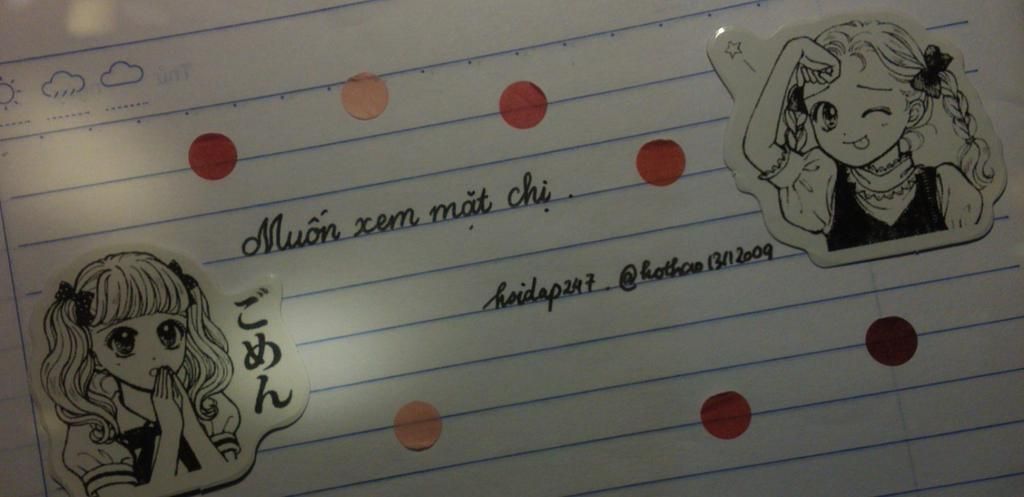 Muốn xem mặt chị.
hoidap247. @hothao13112009
ごめん